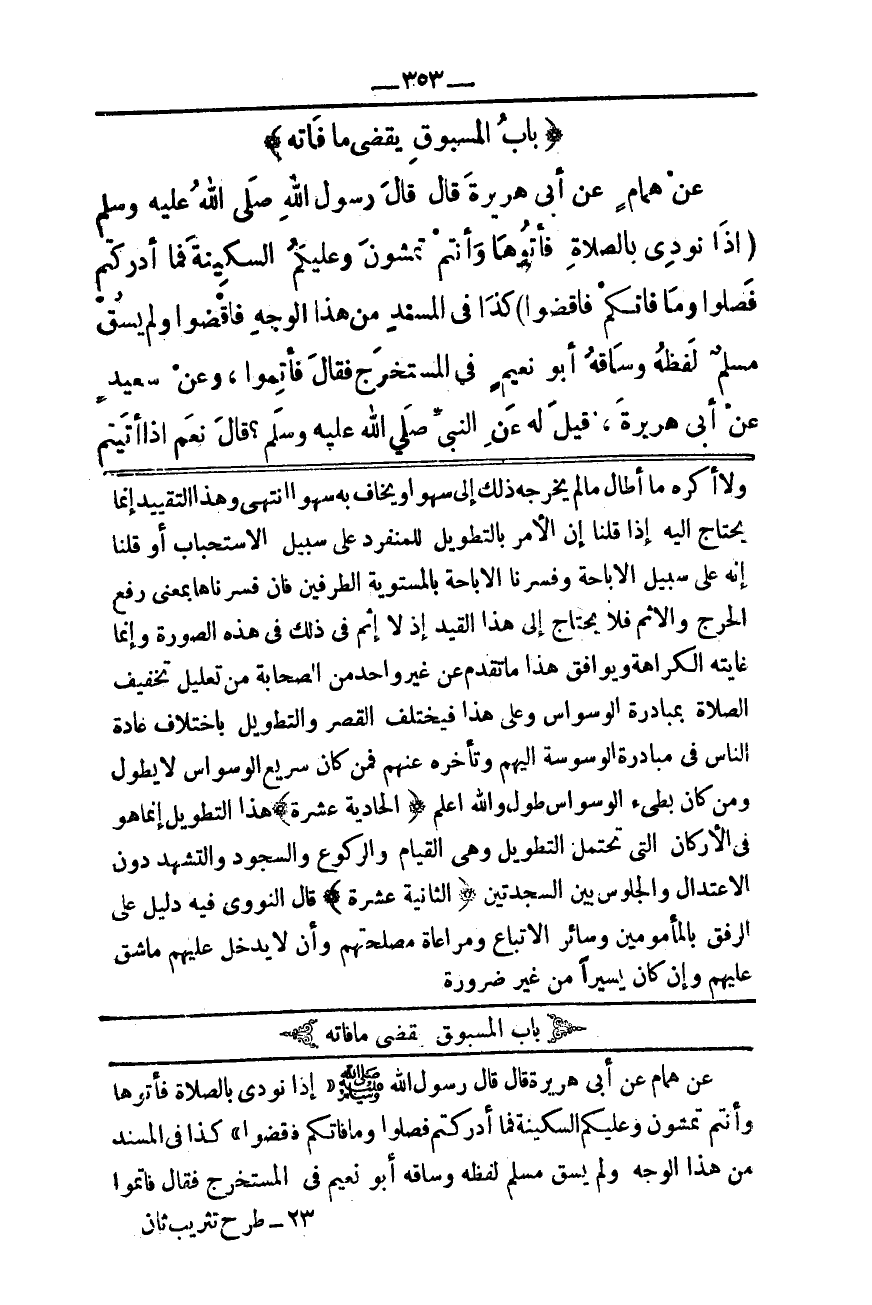 — ٣٥٣ —
﴿ بابُ المسبوقِ يقضى ما فَاته ﴾
عنْ همامٍ عن أبى هريرةَ قال قالَ رسول اللهِ صلَى اللهُ عليه وسلم
( اذَا نودِى بالصلاةِ فأتُوهَا وَأنتمْ تمشونَ وعليكمُ السكيِنةَ فما أدركتم
فَصلوا ومَا فاتكمْ فاقضوا) كذَا فى المسندِ من هذا الوجهِ فاقْضوا ولم يسُقْ
مسلمٌ لَفظهُ وسَاقهُ أبو نعيمٍ في المستخرَج فقالَ فأتِموا ، وعنْ سعيدٍ
عنْ أبى هريرةَ ، قيلَ له عَنِ النبىِّ صلَي الله عليه وسلَم ؟ قالَ نعَم اذا أتَيتم
ولا أكره ما أطال مالم يخرجه ذلك إلى سهو او يخاف به سهوا انتهى وهذا التقييد إنما
يحتاج اليه إذا قلنا إن الأمر بالتطويل للمنفرد على سبيل الاستحباب أو قلنا
إنه على سبيل الاباحة وفسرنا الاباحة بالمستوية الطرفين فان فسرناها بمعنى رفع
الحرج والاثم فلا يحتاج إلى هذا القيد إذ لا إثم فى ذلك فى هذه الصورة وإنما
غايته الكراهة ويوافق هذا ماتقدم عن غير واحد من الصحابة من تعليل تخفيف
الصلاة بمبادرة الوسواس وعلى هذا فيختلف القصر والتطويل باختلاف عادة
الناس فى مبادرة الوسوسة اليهم وتأخره عنهم فمن كان سريع الوسواس لايطول
ومن كان بطىء الوسواس طول والله اعلم ﴿ الحادية عشرة ﴾ هذا التطويل إنما هو
فى الأركان التى تحتمل التطويل وهى القيام والركوع والسجود والتشهد دون
الاعتدال والجلوس بين السجدتين ﴿ الثانية عشرة ﴾ قال النووى فيه دليل على
الرفق بالمأمومين وسائر الاتباع ومراعاة مصلحتهم وأن لا يدخل عليهم ماشق
عليهم وإن كان يسيراً من غير ضرورة
باب المسبوق يقضى مافاته
عن همام عن أبى هريرة قال قال رسول الله ﷺ « إذا نودى بالصلاة فأتوها
وأنتم تمشون وعليكم السكينة فما أدركتم فصلوا ومافاتكم فقضوا» كذا فى المسند
من هذا الوجه ولم يسق مسلم لفظه وساقه أبو نعيم فى المستخرج فقال فاتموا
٢٣ – طرح تثريب ثان